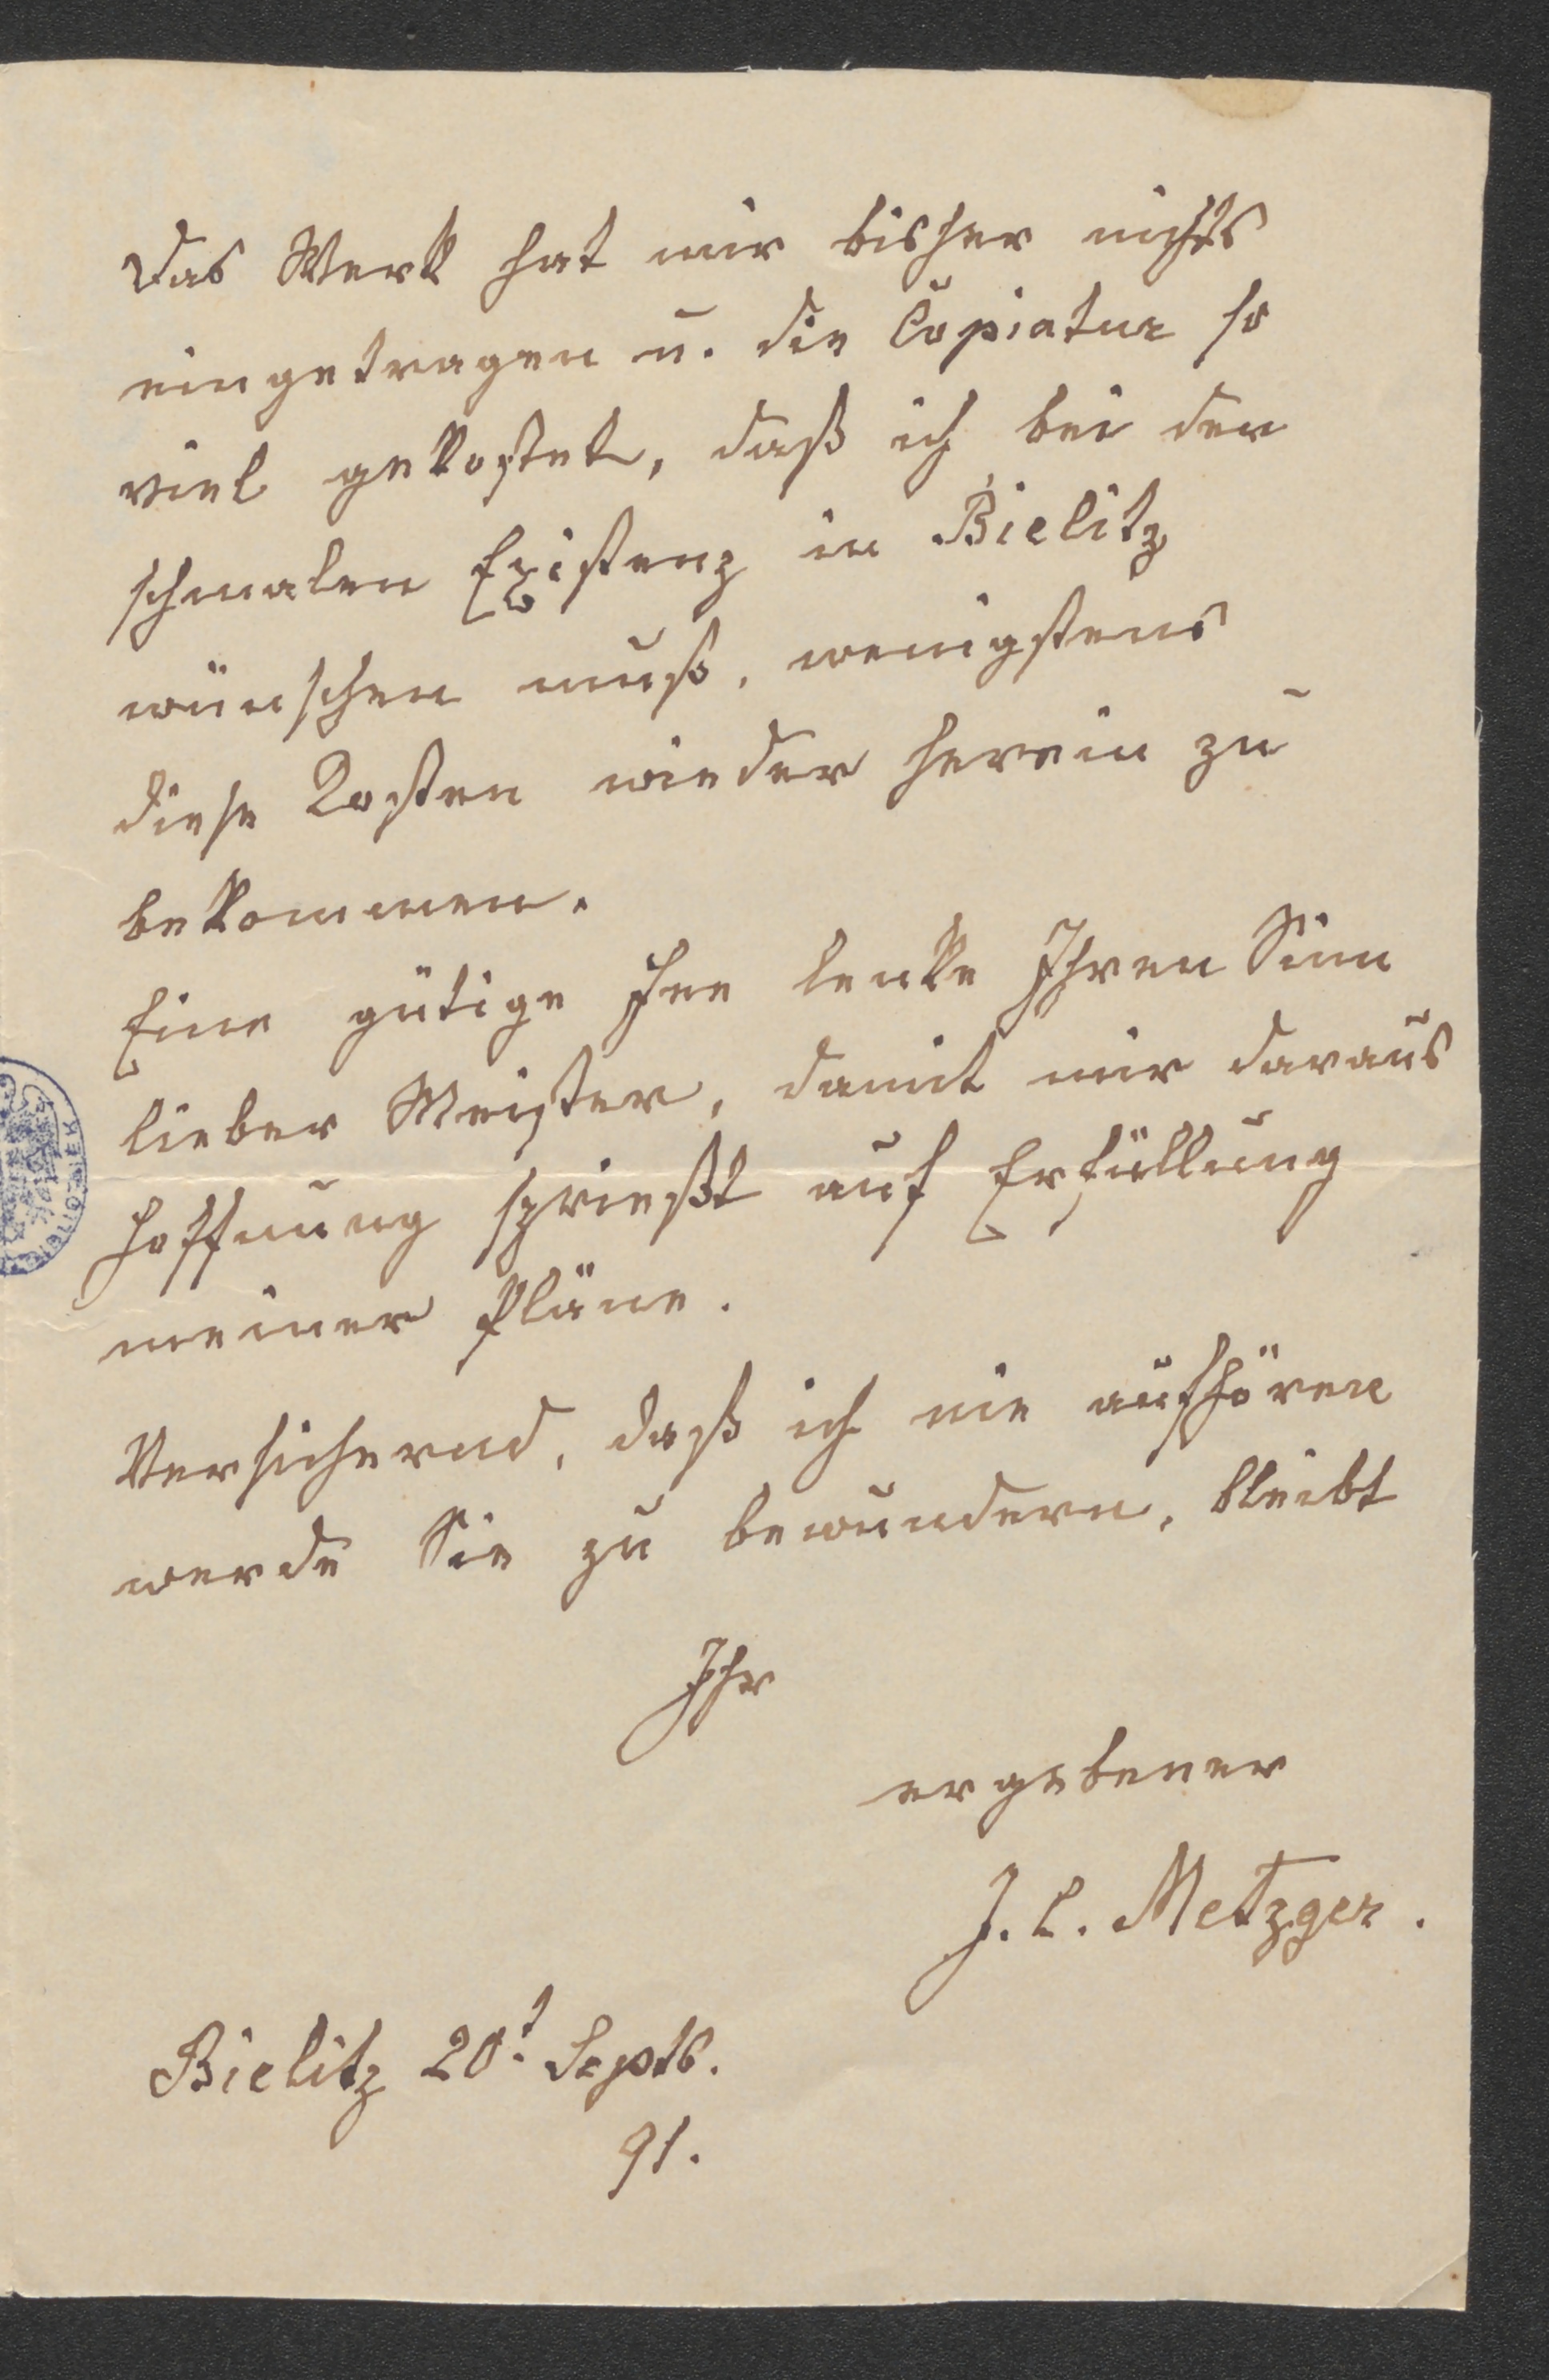 Das Werk hat mir bisher nichts
eingetragen u. die Copiatur so
viel gekostet, daß ich bei der
schmalen Existenz in Bielitz
wünschen muß, wenigstens
diese Kosten wieder herein zu
bekommen.
Eine gütige Fee lenke Ihren Sinn
lieber Meister, damit mir daraus
Hoffnung sprießt auf Erfüllung
meiner Pläne.
Versichernd, daß ich nie aufhören
werde Sie zu bewundern, bleibt
Ihr
ergebener
J. L. Metzger.
BIBLIOTHEK
Bielitz 20t. Septb.
91.